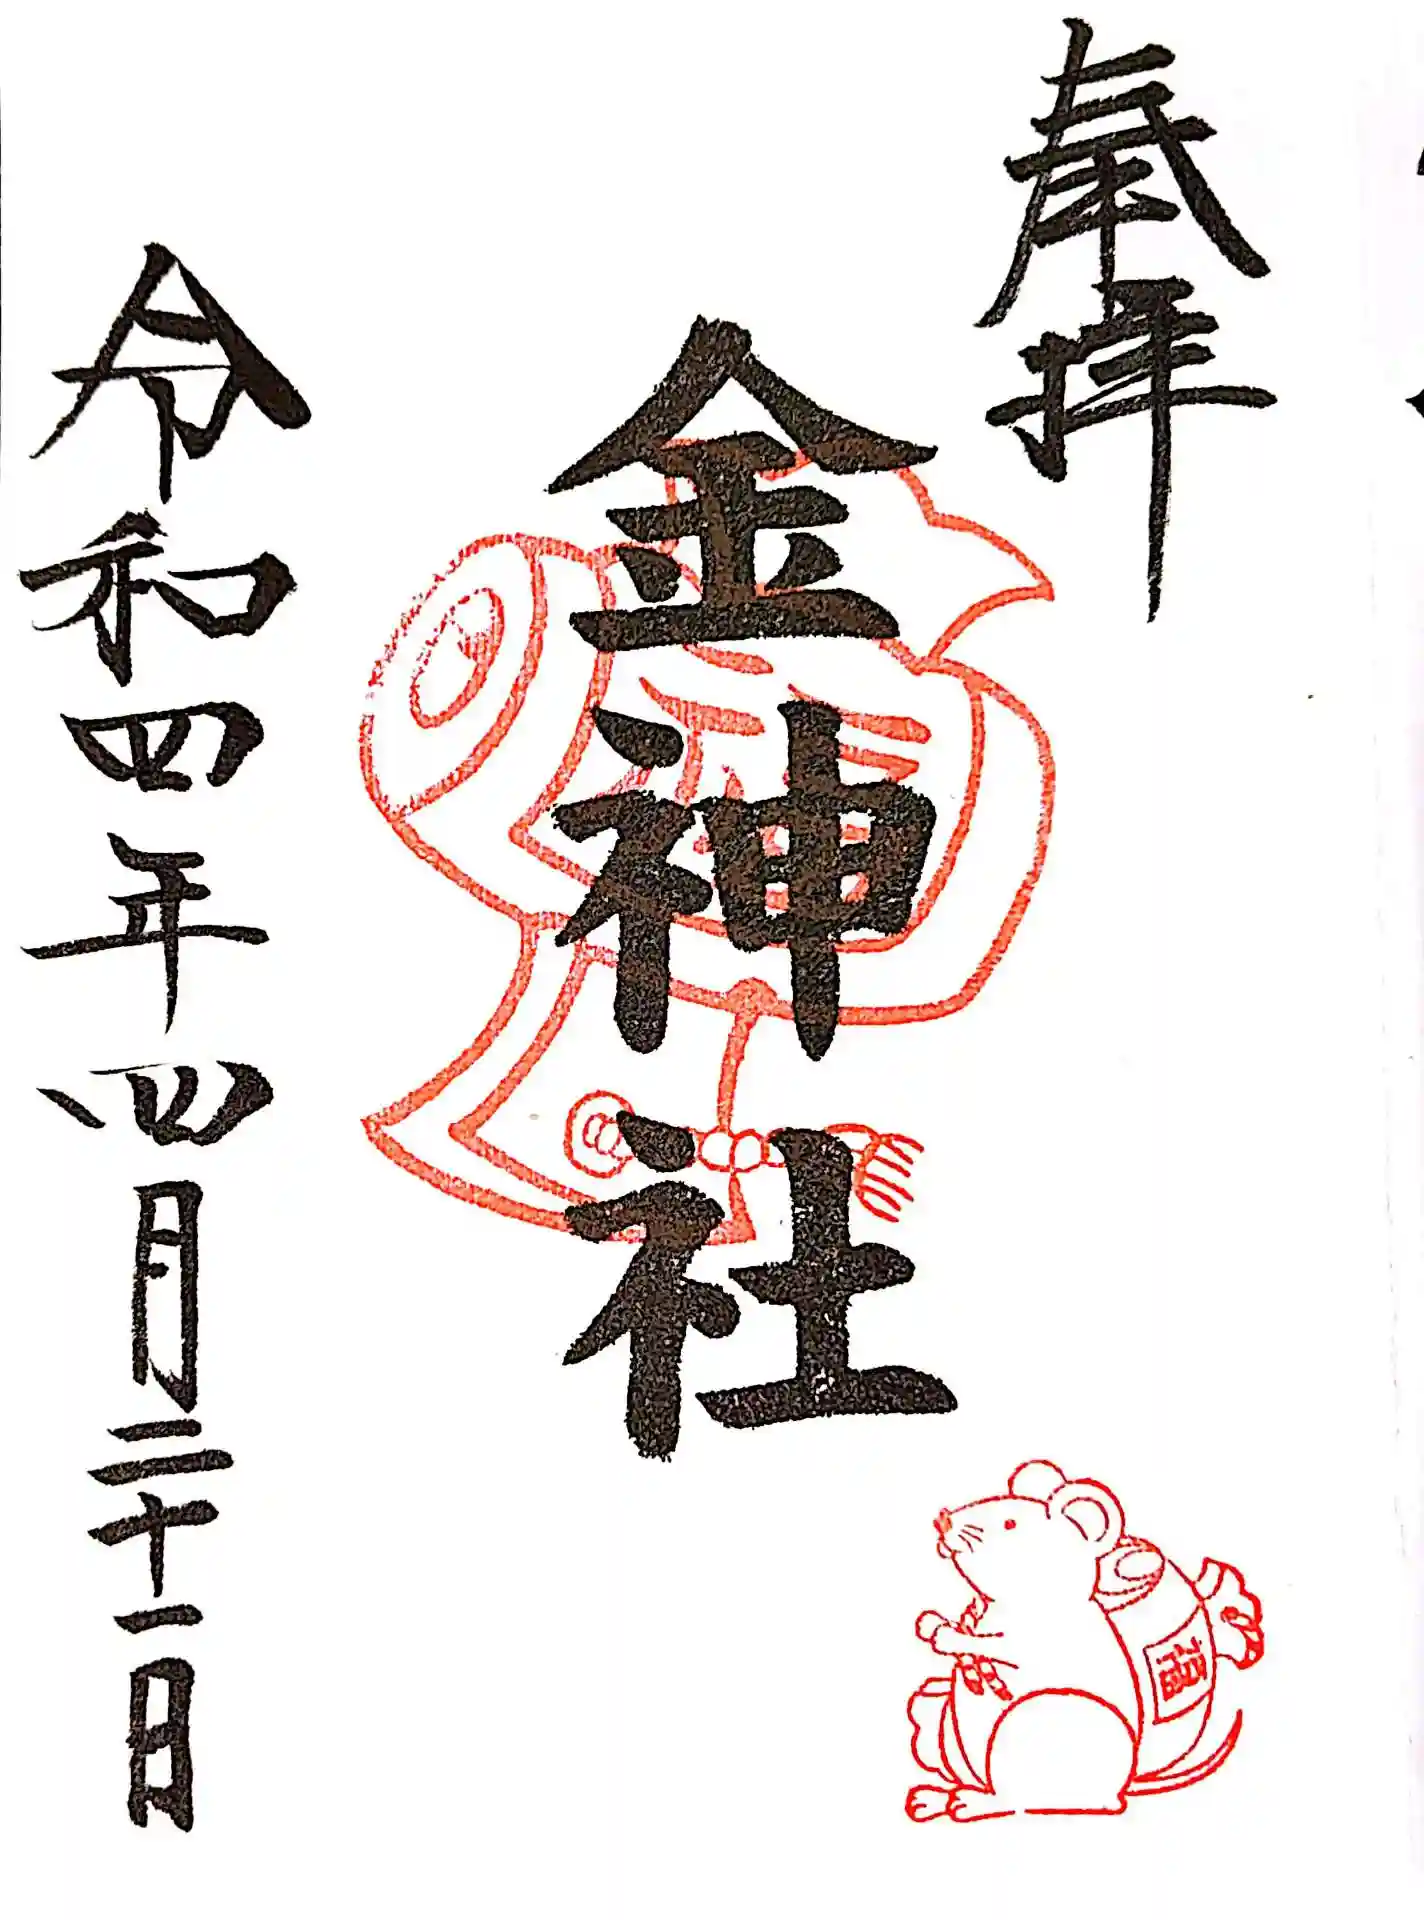 奉拝
金神社
令和四年四月二十一日
福